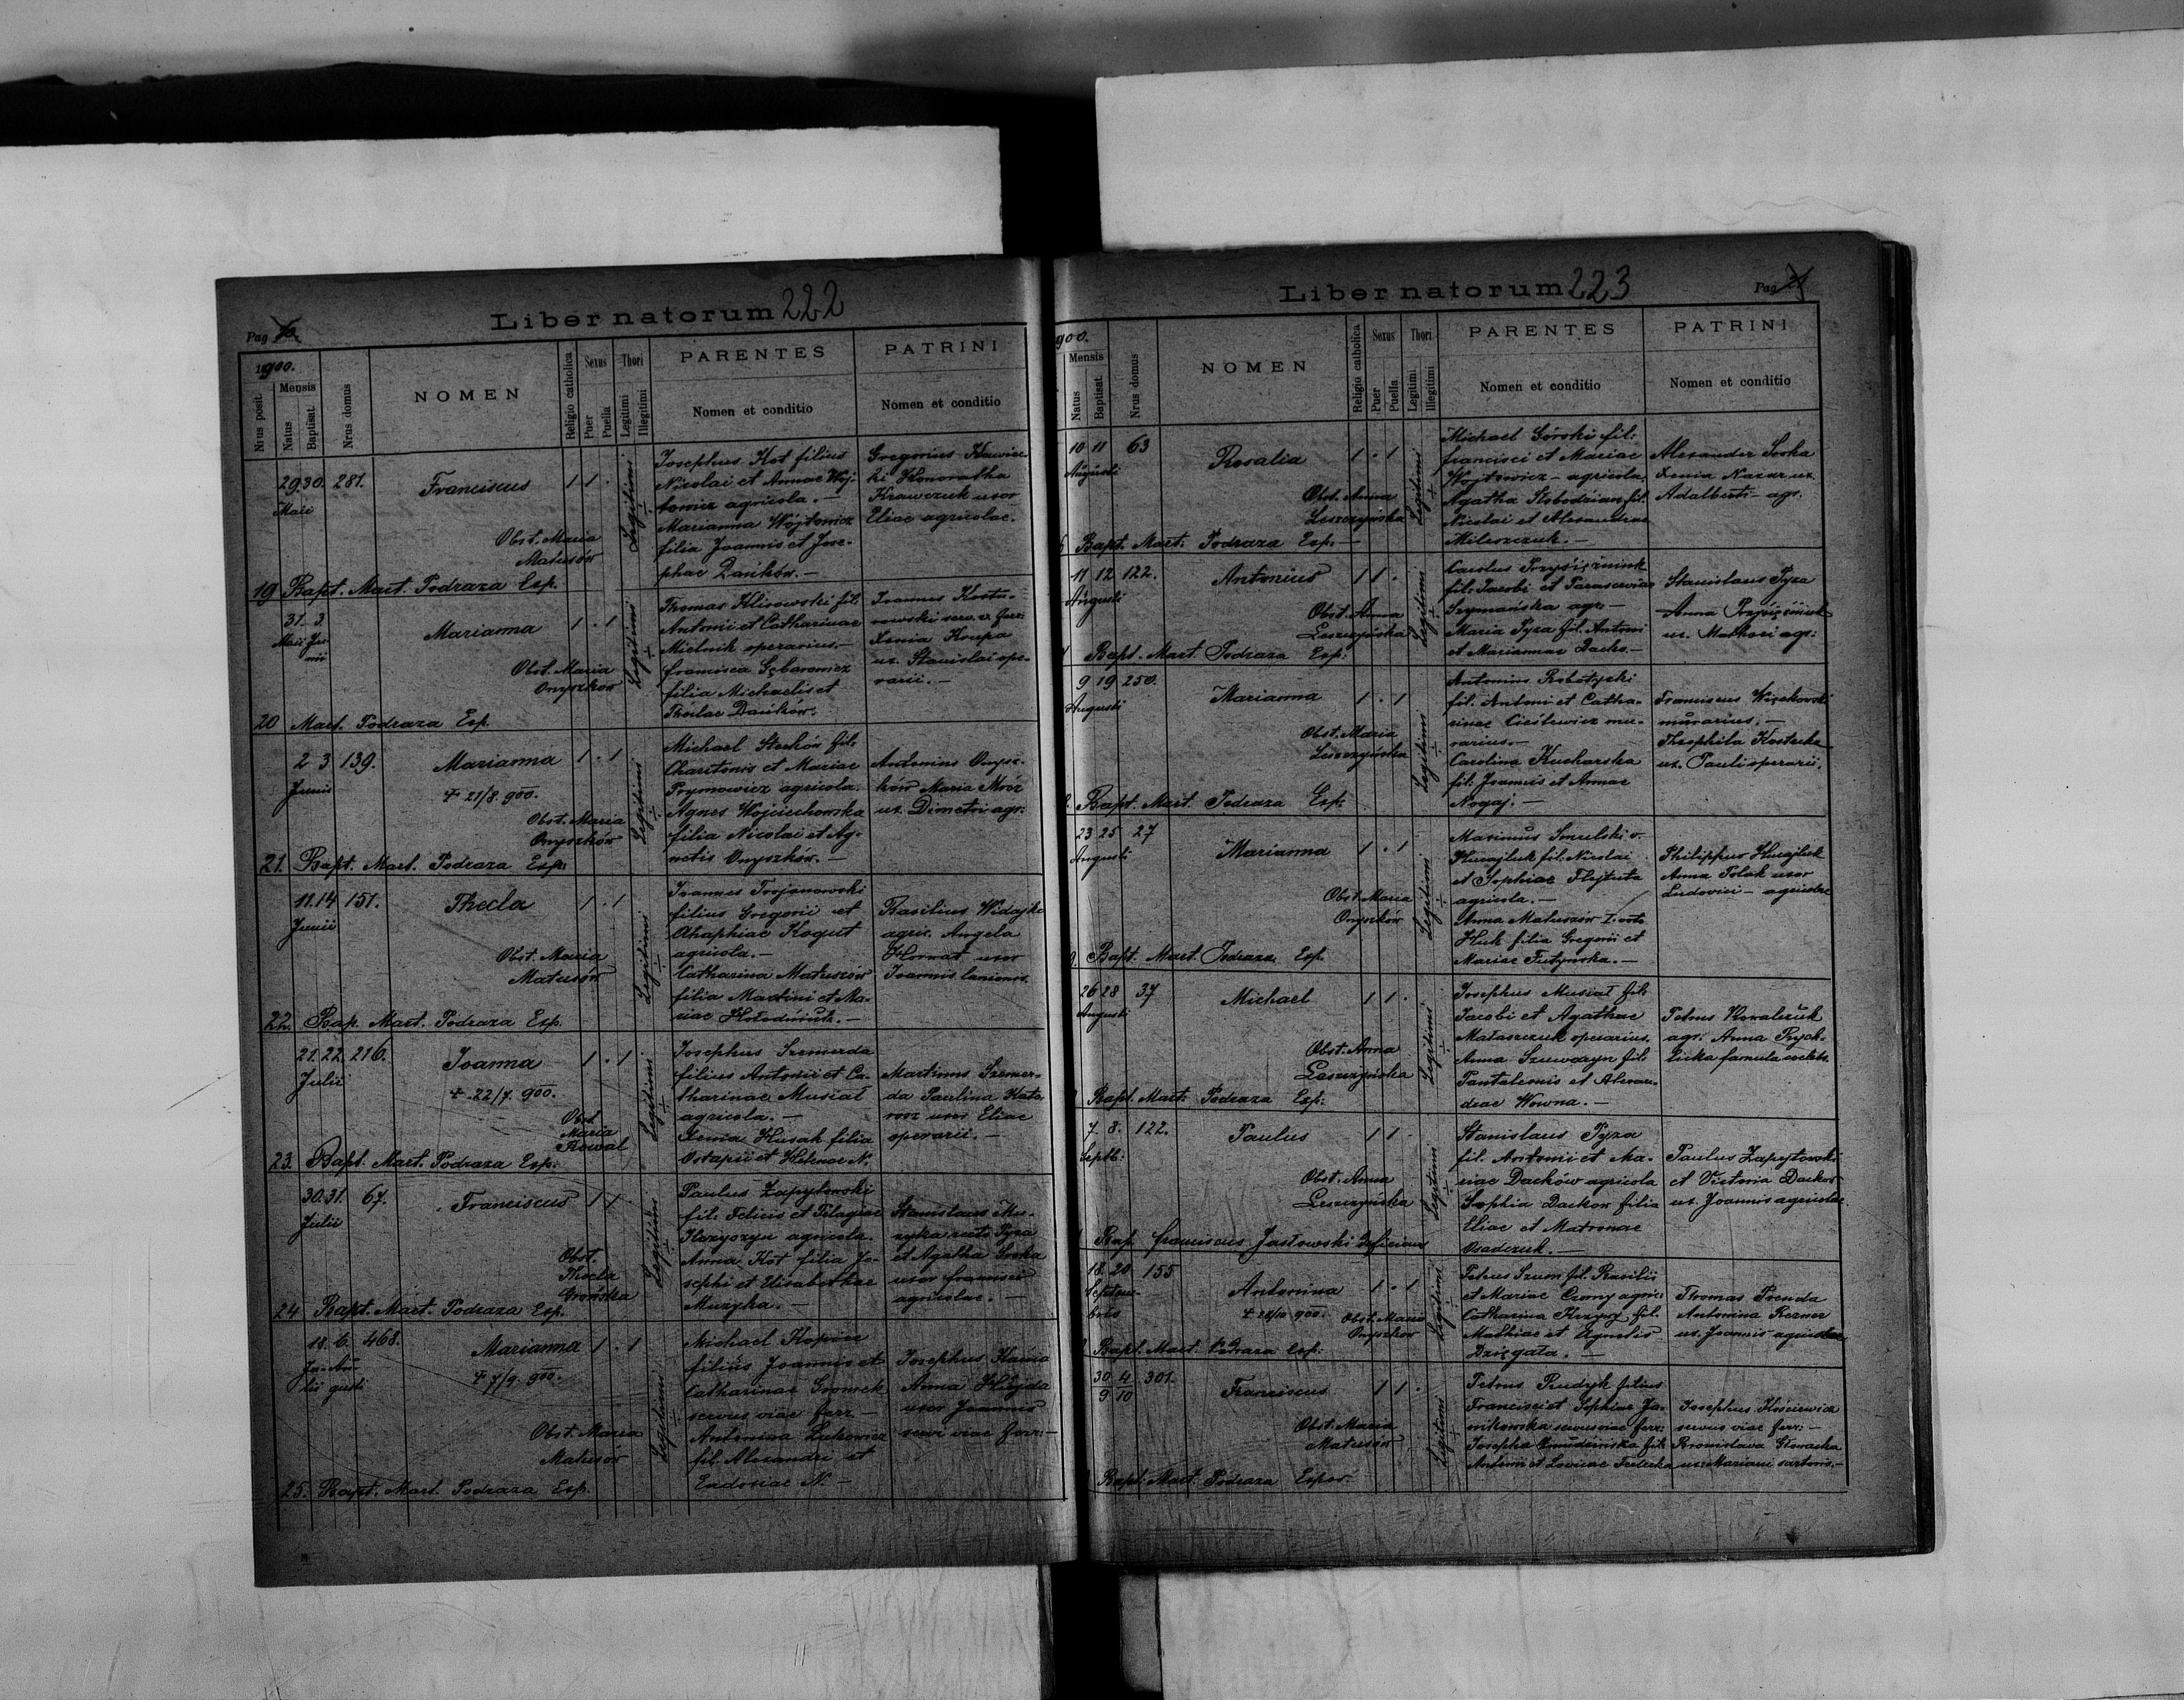 Liber natorum 222
Pag
1900.
Nrus posit.
Mensis
Natus
Baptisat.
Nrus domus
NOMEN
Religio catholica
Sexus
Puer
Puella
Thori
Legitimi
Illegitimi
PARENTES
Nomen et conditio
PATRINI
Nomen et conditio
29 30. 281.
Maii
Franciscus
1 1 .
Legitimi
Obst. Maria
Matusów
Josephus Kot filius
Nicolai et Annae Woj-
towicz agricola. —
Marianna Wójtowicz
filia Joannis et Jose-
phae Dańków. —
Gregorius
Honoratha
Krawczuk uxor
Eliae agricolae.
19 Bapt. Mart. Podraza Exp.
31 3
Maii Ju-
nii
Marianna
1 . 1
Legitimi
Obst. Maria
Onyszków
Thomas Klisowski fil.
Antonii et Catharinae
Mielnik operarius. —
Francisca Gębarowicz
filia Michaelis et
Theclae Dańków.
Joannes
serv. v. ferr.
Xenia Koupa
ux. Stanislai ope-
rarii. —
20 Mart. Podraza Exp.
2 3 139.
Junii
Marianna
+ 21/8. 900.
1 . 1
Legitimi
Obst. Maria
Onyszków
Michael Stechów fil.
Charitonis et Mariae
Prymowicz agricola.
Agnes Wojciechowska
filia Nicolai et Ag-
netis Onyszków. —
Antonius Onysz-
ków Maria Mróz
ux. Dimetri agr.
21. Bapt. Mart. Podraza Exp.
11. 14 151.
Junii
Thecla
1 . 1
Legitimi
Obst. Maria
Matusów
Joannes Trojanowski
filius Gregorii et
Ahaphiae Kogut
agricola. —
Catharina Matuszów
filia Martini et Ma-
riae
Basilius
agric. Angela
Hornat uxor
Joannis lanionis.
22. Bap. Mart. Podraza Exp.
21. 22. 216.
Julii
Joanna
+ 22/7. 900.
1 . 1
Legitimi
Obst.
Maria
Kowal
Josephus Szemerda
filius Antonii et Ca-
tharinae Musiał
agricola. —
Xenia Husak filia
Ostapii et Helenae N.
Martinus Szemer-
da Paulina
uxor Eliae
operarii. —
23. Bapt. Mart. Podraza Exp.
30. 31. 67.
Julii
Franciscus
1 1
Legitimi
Obst.
Thecla
Grońska
Paulus Zapytowski
fil. Felicis et Pelagiae
agricola.
Anna Kot filia Jo-
sephi et Elisabethae
Muzyka. —
Stanislaus Mu-
zyka recte Pyza
et Agatha Soroka
uxor Francisci
agricolae. —
24 Bapt. Mart. Podraza Exp.
18. 6. 468.
Ju- Au-
lii gusti
Marianna
+ 7/9. 900.
1 . 1
Legitimi
Obst. Maria
Matusów
Michael Kopiec
filius Joannis et
Catharinae Gromek
servus viae ferr. —
Antonina Lukowicz
fil. Alexandri et
Eudoxiae N. —
Josephus Kania
Anna
uxor Joannis
servi viae ferr. —
25. Bapt. Mart. Podraza Exp.
Liber natorum 223
Pag
900.
Mensis
Natus
Baptisat.
Nrus domus
NOMEN
Religio catholica
Sexus
Puer
Puella
Thori
Legitimi
Illegitimi
PARENTES
Nomen et conditio
PATRINI
Nomen et conditio
10 11 63
Augusti
Rosalia
1 . 1
Legitimi
Obst. Anna
Leszczyńska
Michael Górski fil.
Francisci et Mariae
Wojtowicz — agricola,
Agatha Słobodzian fil.
Nicolai et Alexandrae
Mileszczuk. —
Alexander Soroka
Xenia Nazar ux.
Adalberti — agr.
Bapt. Mart. Podraza Exp. —
11 12 122.
Augusti
Antonius
1 1 .
Legitimi
Obst. Anna
Leszczyńska
Carolus Przysiężniuk
fil. Jacobi et Parasceviae
Szymańska agr. —
Maria Pyza fil. Antoni
et Mariannae Dacko. —
Stanislaus Pyza
Anna Przysiężniuk
ux. Mathaei agr.
Bapt. Mart. Podraza Exp.
9 19 250.
Augusti
Marianna
1 . 1
Legitimi
Obst. Maria
Leszczyńska
Antonius Robotycki
fil. Antoni et Catha-
rinae Cieślewicz mu-
rarius. —
Carolina Kucharska
fil. Joannis et Annae
Nogaj. —
Franciscus Więckowski
murarius. —
Theophila Kostecka
ux. Pauli operarii.
Bapt. Mart. Podraza Exp.
23 25 27
Augusti
Marianna
1 . 1
Legitimi
Obst. Maria
Onyszków
Maximus Smulski v.
Huzajluk fil. Nicolai
et Sophiae Flejtuta
agricola. —
Anna Matuszów I. voto
Huk filia Gregorii et
Mariae Tutynska. —
Philippus Huzajluk
Anna Polak uxor
Ludovici — agricolae
Bapt. Mart. Podraza Exp.
26 28 37
Augusti
Michael
1 1 .
Legitimi
Obst. Anna
Leszczyńska
Josephus Musiał fil.
Jacobi et Agathae
Mataszczuk operarius.
Anna Szewczyn fil.
Pantalemis et Alexan-
drae Wowna. —
Petrus Kowalczuk
agr. Anna Rych-
licka famula coelebs.
Bapt. Mart. Podraza Exp.
7. 8. 122.
Septb.
Paulus
1 1 .
Legitimi
Obst. Anna
Leszczyńska
Stanislaus Pyza
fil. Antonii et Ma-
riae Dacków agricola
Sophia Dackow filia
Eliae et Matronae
Osadczuk. —
Paulus Zapytowski
et Victoria Dackow
ux. Joannis agricolae
Bap. Franciscus Jastowski
18. 20 155
Septem-
bris
Antonina
1 . 1
Legitimi
Obst. Maria
Onyszków
Petrus Szum fil. Basilii
et Mariae Czorny agric.
Catharina Krzywy fil.
Mathiae et Agnetis
Dzięgała. —
Thomas Prenda
Antonina Rezner
ux. Joannis agricolae
Bapt. Mart. Podraza Exp.
30 4 301.
9 10
Franciscus
1 1 .
Legitimi
Obst. Maria
Matusów
Petrus Rudyk filius
Francisci et Sophiae Ja-
nikowska servus viae ferr.
Josepha Żmudzińska fil.
Antoni et
Josephus Kosciewicz
servus viae ferr. —
Bronislava Głowacka
ux. Mariani sartoris. —
Bapt. Mart. Podraza Expos.